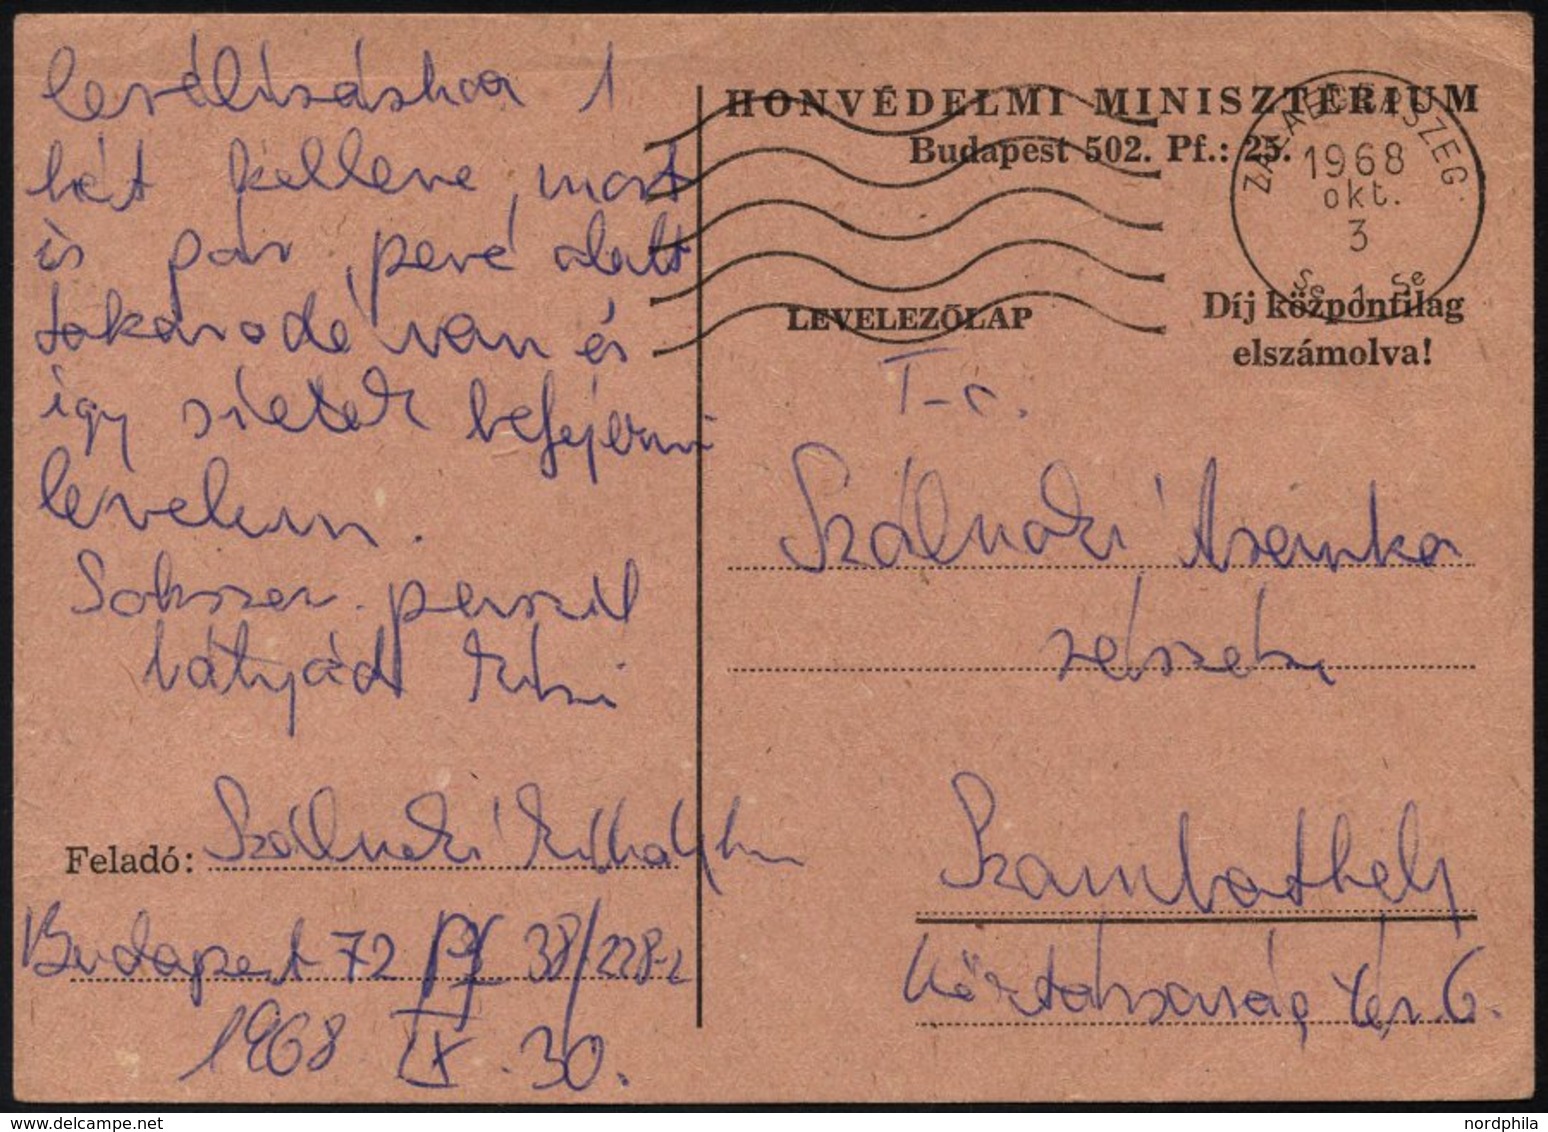 levélíráshoz 1
hét kellene, most
is pár perc alatt
takarodó van és
így sietek befejezni
levelem.
Sokszor
bátyád Misi
Feladó: Szálnoki Mihály hv
Budapest 72 Pf 38/228-2
1968 IX. 30.
HONVÉDELMI MINISZTÉRIUM
Budapest 502. Pf.: 25.
ZALAEGERSZEG
1968
okt.
3
Se 1 Se
LEVELEZŐLAP
Díj központilag
elszámolva!
T-c.
Szálnoki
részére
Szombathely
Köztársaság tér 6.
nordphila